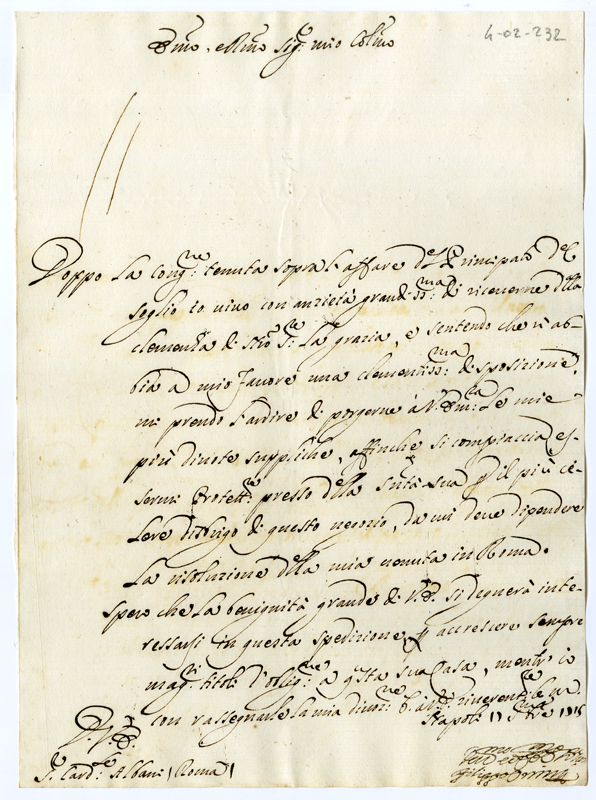 4-02-232
Em̄o, e Rm̄o Sig.r mio Col.mo
Doppo la Cong.ne tenuta sopra l'affare del Principato del
soglio io vivo con anzietà grandiss.ma di riceverne dalla
clemenza di la grazia, e sentendo che vi ab-
bia a mio favore una clementiss.ma disposizione,
mi prendo l'ardire di porgerne à V. Em.za le mie
più divote suppliche, affinche si compiaccia es-
sermi Protett.re presso della Sant.à sua p il più ce-
lere disbrigo di questo negozio, da cui deve dipendere
la risoluzione della mia venuta in Roma.
Spero che la benignità grande di V.E. si degnerà inte-
ressarsi in questa spedizione p accrescere sempre
mag.ri titoli d'oblig.ne a q.sta sua Casa, mentr'io
con rassegnarle la mia divoz.ne
Napoli
D V.E.
S.r Card.le Albani (Roma)